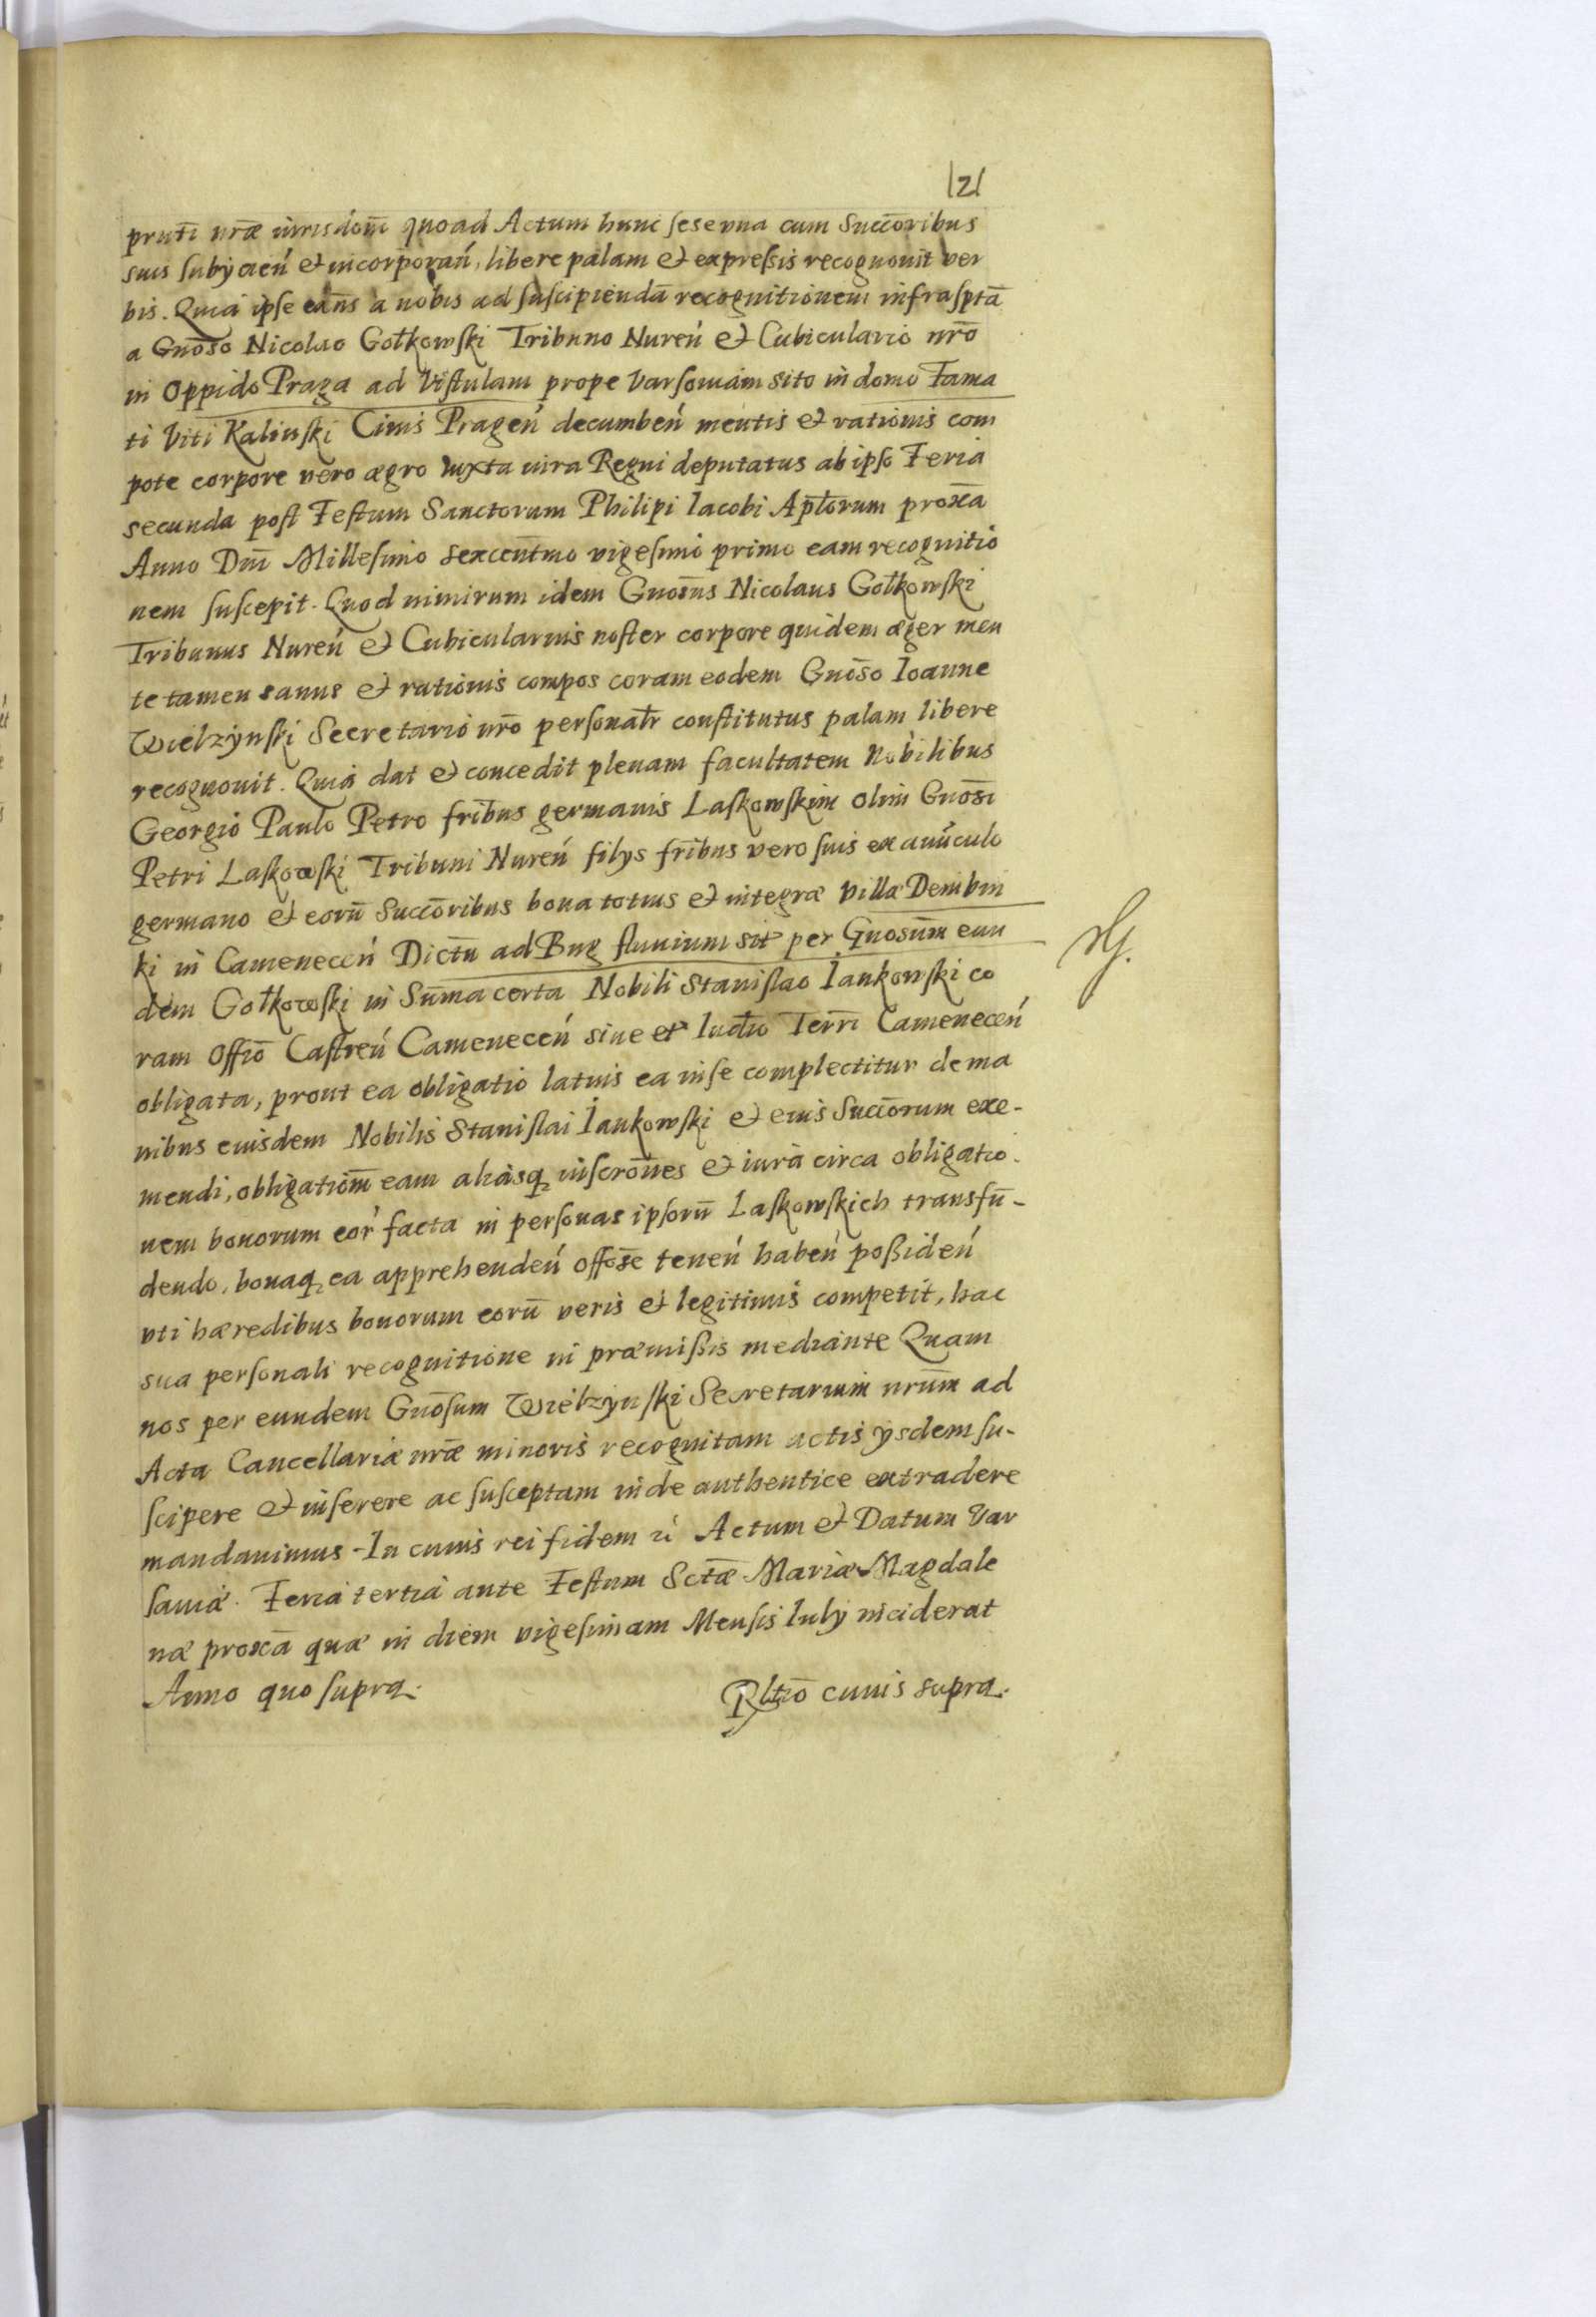 121
prnti nrae iurisdom̄ quoad Actum hunc sese una cum Succ̄oribus
suis subÿcień et incorporań, libere palam et expressis recognouit ver
bis. Quia ipse ea̅ns a nobis ad suscipiendā recognitionem infrasptā
a Gnōso Nicolao Gołkowski Tribuno Nureń et Cubiculario nr̄o
in Oppido Praga ad Vistulam prope Varsouiam sito in domo Fama
ti Viti Kalinski Ciuis Prageń decumbeń mentis et rationis com
pote corpore vero ægro Iuxta iura Regni deputatus ab ipso Feria
secunda post Festum Sanctorum Philipi Iacobi Apłorum proxā
Anno Dn̄i Millesimo sexcentmo vigesimo primo eam recognitio
nem suscepit. Quod nimirum idem Gnōsus Nicolaus Gołkowski
Tribunus Nureń et Cubicularius noster corpore quidem æger men
te tamen sanus et rationis compos coram eodem Gnōso Ioanne
Wielzynski Secretario nr̄o personałr constitutus palam libere
recognouit. Quia dat et concedit plenam facultatem Nobilibus
Georgio Paulo Petro fribus germanis Laskowskim olim Gnōsi
Petri Laskowski Tribuni Nureń filys fribus vero suis ex auūculo
germano et eorū Succ̄oribus bona totius et integræ villæ Dembin
ki in Cameneceń Dictū ad Bug fluuium sit per Gnosūm eun
dem Gołkowski in Sūma certa Nobili Stanislao Iankowski co
ram Offiō Castreń Cameneceń siue et Iudīo Terrī Cameneceń
obligata, prout ea obligatio latius ea in se complectitur de ma
nibus eiusdem Nobilis Stanislai Iankowski et eius Succ̄orum exi-
mendi, obligatiōm eam aliasq₃ inscrōnes et iura circa obligatio-
nem bonorum eor facta in personas ipsorū Laskowskich transfū-
dendo, bonaq₃ ea apprehendeń offōse teneń habeń possideń
vti hæredibus bonorum eorū veris et legitimis competit, hac
sua personali recognitione in præmissis mediante Quam
nos per eundem Gnōsum Wielzynski Secretarium nrūm ad
Acta Cancellariæ nr̄æ minoris recognitam actis ysdem su-
scipere et inserere ac susceptam inde authentice extradere
mandauimus - In cuius rei fidem Actum et Datum Var
sauiæ. Feria tertia ante Festum Sctæ Mariæ Magdale
næ proxā quæ in diem vigesimam Mensis Iuly inciderat
Anno quo supra. Rltīo cuius supra.